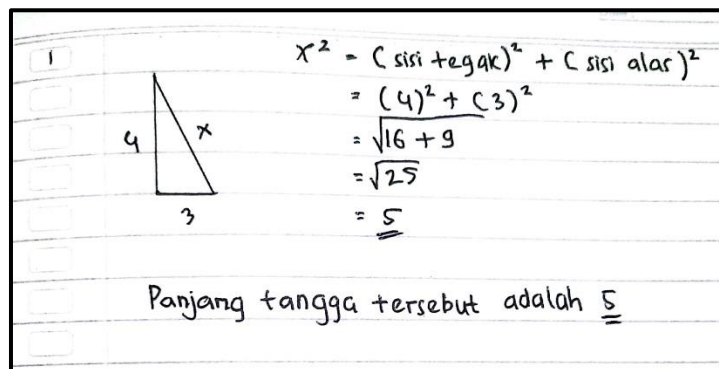 1
x² = (sisi tegak)² + (sisi alas)²
= (4)² + (3)²
= √16 + 9
= √25
= 5
4
x
3
Panjang tangga tersebut adalah 5